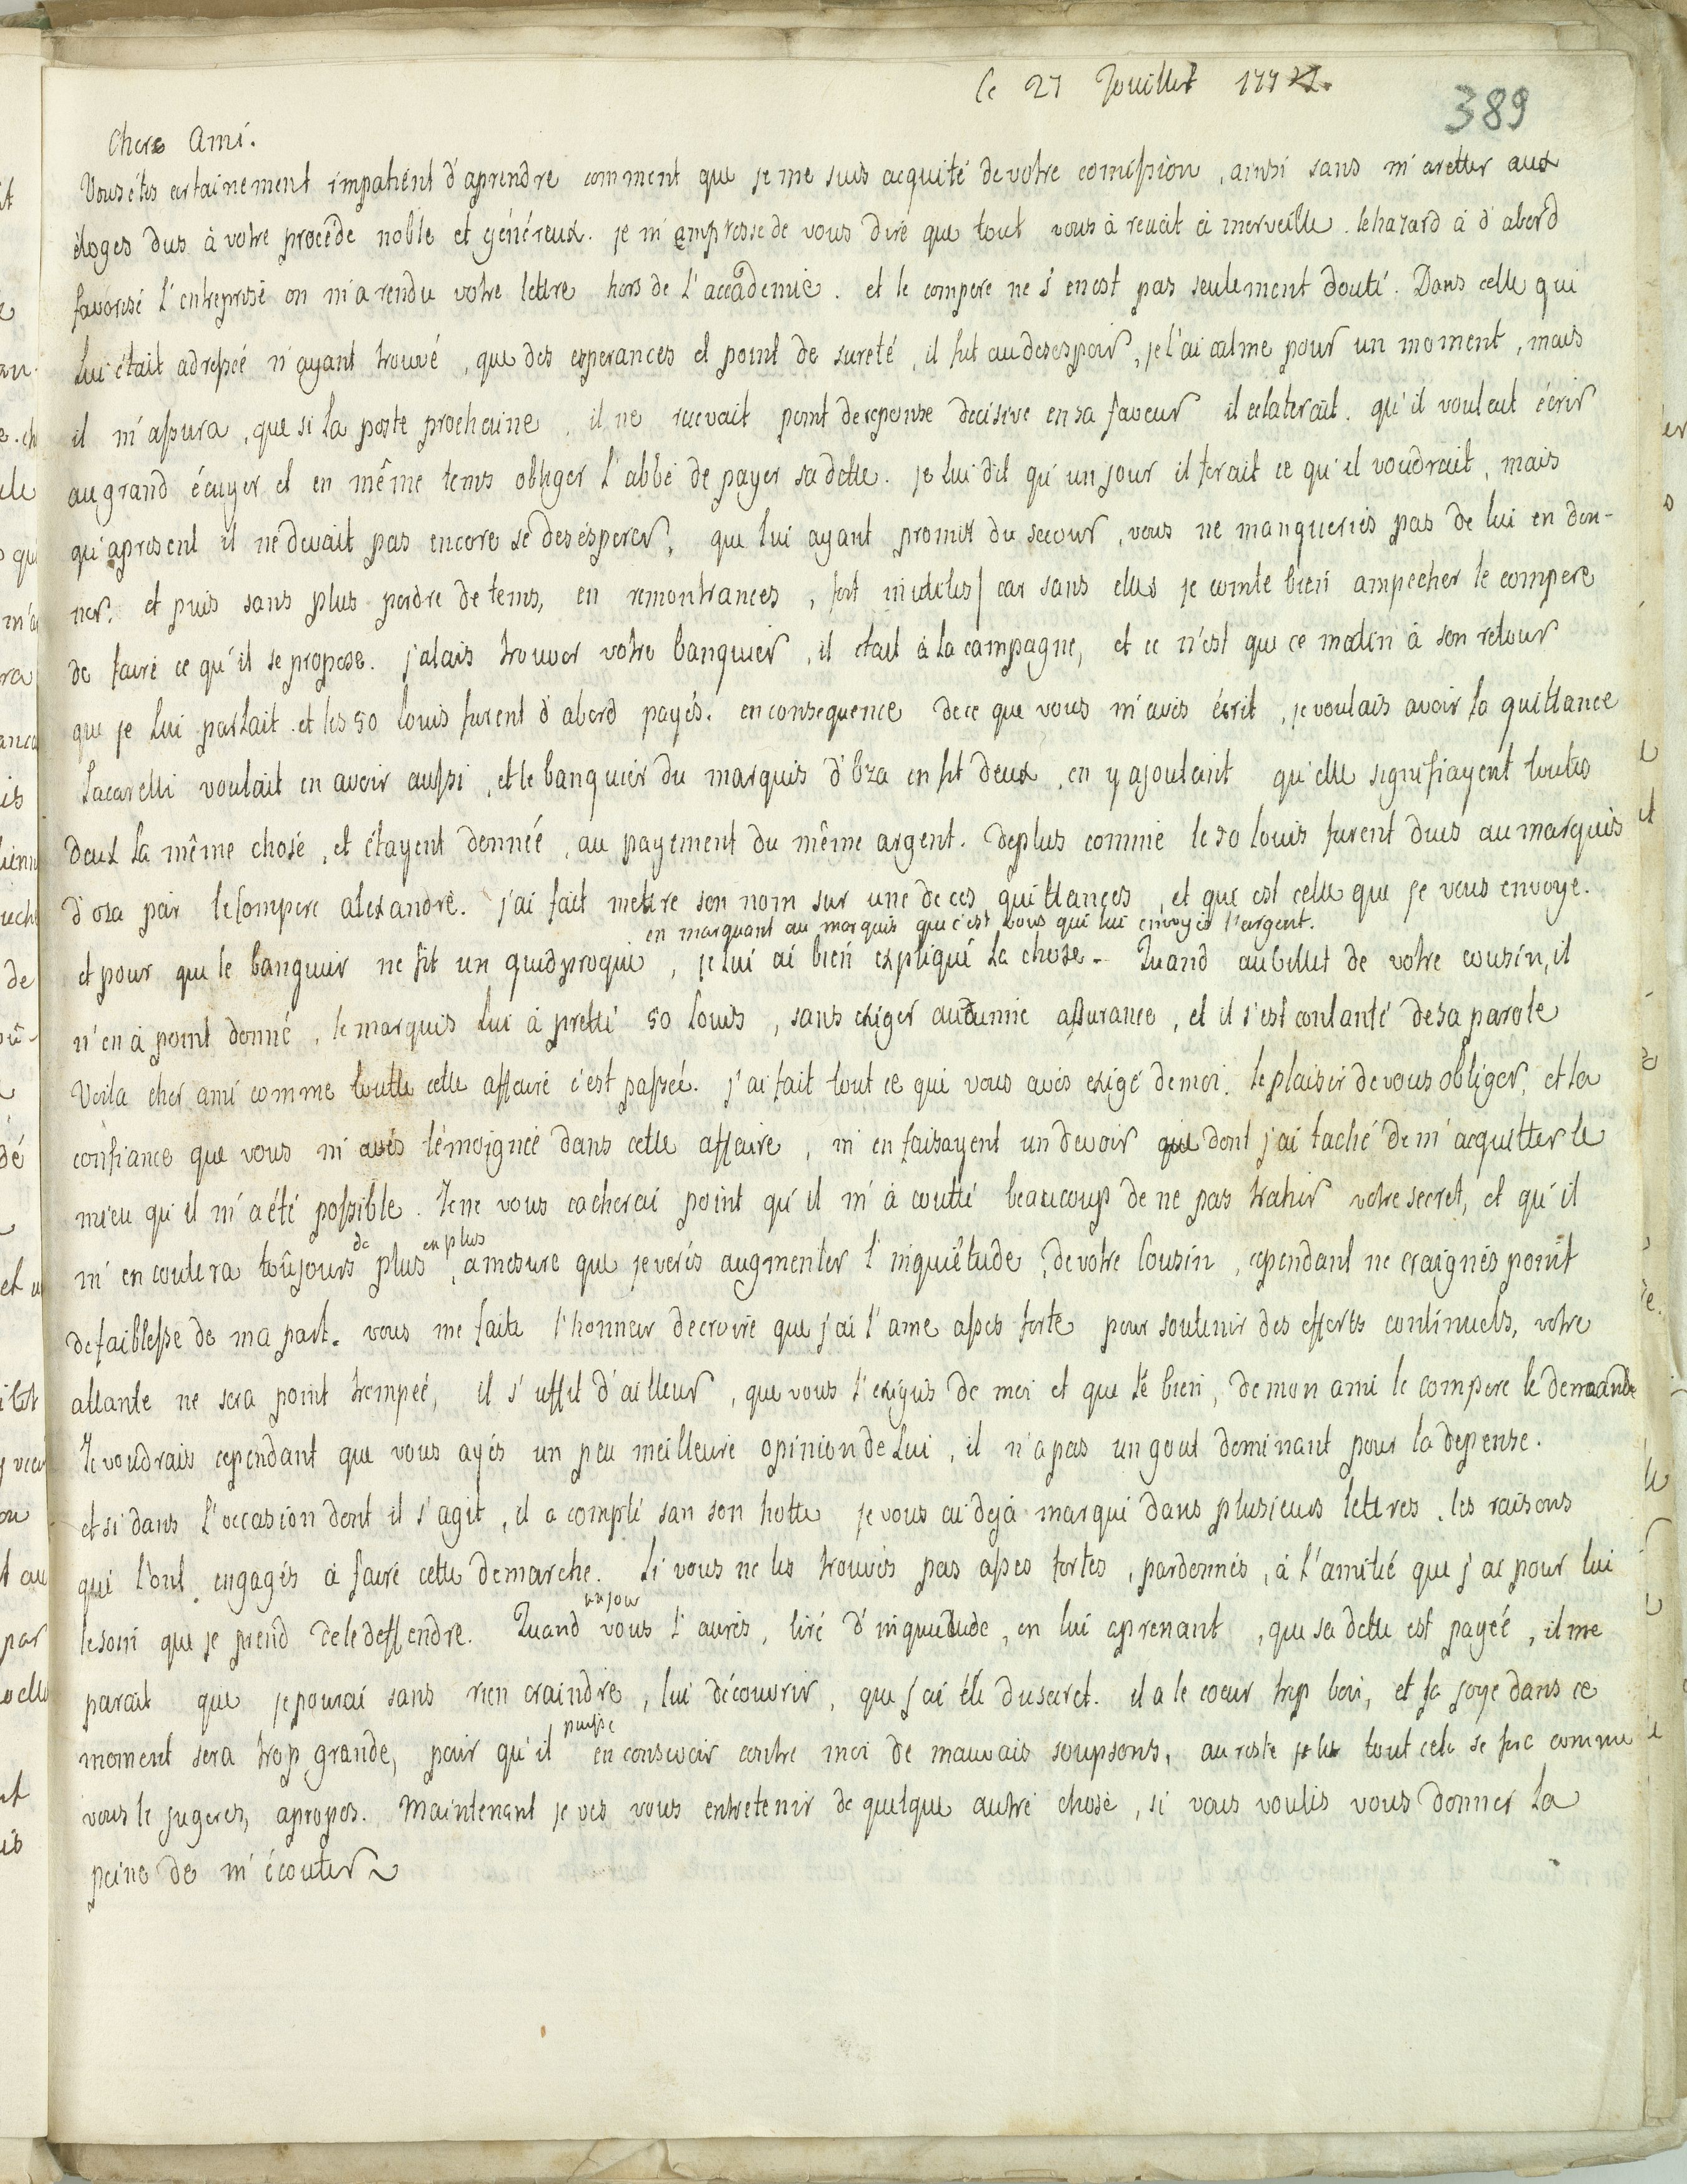 le 27 Jouillet 177
389
Chere Ami.
Vous étes certainement impatient d'aprendre comment que je me suis acquité de votre comission, ainsi sans m'aretter aux
éloges dus à votre procede noble et généreux. je m'empresse de vous dire que tout vous à reuait à merveille. le hazard à d'abord
favorisé l'entreprise on m'a rendu votre lettre hors de l'accademie. et le compere ne s'en est pas seulement douté. Dans celle qui
lui était adressée n'ayant trouvé, que des esperances et point de sureté, il fut au desespoir, je l'ai calme pour un moment, mais
il m'assura, que si la poste prochaine, il ne recevait point de reponse decisive en sa faveur il eclaterait. qu'il voulait écrir
au grand écuyer et en même tems obliger l'abbé de payer sa dette. je lui dit qu'un jour il ferait ce qu'il voudrait, mais
qu'apresent il ne devait pas encore se desésperer, que lui ayant promit du secour, vous ne manqueriés pas de lui en don-
ner. et puis sans plus perdre de tems, en remontrances, fort inutiles/ car sans elles je comte bien ampecher le compere
de faire ce qu'il se propose. j'alais trouver votre banquier, il etait à la campagne, et ce n'est que ce matin à son retour
que je lui parlait. et les 50 louis furent d'abord payés. en consequence de ce que vous m'avés écrit, je voulais avoir la quittance
Lacarelli voulait en avoir aussi, et le banquier du marquis d'Oza en fit deux, en y ajoutant qu'elle signifiayent toutes
deux la même chose, et étayent donnée, au payement du même argent. deplus comme le 50 louis furent dues au marquis
d'oza par le compere alexandre. j'ai fait mettre son nom sur une de ces quittances, et que est celle que je vous envoye.
en marquant au marquis que c'est vous qui lui envoyés l'argent.
et pour que le banquier ne fit un quidproquie, je lui ai bien expliqué la chose. Quand au billet de votre cousin, il
n'en à point donné, le marquis lui à pretté 50 louis, sans exiger aucunne assurance, et il s'est contanté de sa parole
Voila cher ami comme toutte cette affaire c'est passée. j'ai fait tout ce qui vous avés exigé de moi. le plaisir de vous obliger, et la
confiance que vous m'avés témoignée dans cette affaire, m'en faisayent un devoir que dont j'ai taché de m'acquitter le
mieu qu'il m'a été possible. Je ne vous cacherai point qu'il m'à coutté beaucoup de ne pas trahir votre secret, et qu'il
m'en coutera toûjours de plus en plus, a mesure que je verés augmenter l'inquiétude, de votre Cousin, cependant ne craignés point
de faiblesse de ma part. vous me faite l'honneur de croire que j'ai l'ame asses forte pour soutenir des efforts continuels, votre
attante ne sera point trompeé, il s'uffit d'ailleur, que vous l'exigiés de moi et que le bien, de mon ami le compere le demande
Je voudrais cependant que vous ayés un peu meilleure opinion de lui, il n'a pas un gout dominant pour la depense.
et si dans l'occasion dont il s'agit, il a compté san son hotte je vous ai dejà marqué dans plusieurs lettres, les raisons
qui l'ont engagés à faire cette demarche. Si vous ne les trouvés pas asses fortes, pardonnés, à l'amitié que j'ai pour lui
le soin que je prend de le deffendre. Quand un jour vous l'aurés, tiré d'inquietude, en lui aprenant, que sa dette est payeé, il me
parait que je pourai sans rien craindre, lui découvrir, que j'ai été du secret. il a le coeur trop bon, et sa joye dans ce
moment sera trop grande, pour qu'il puisse en consevoir contre moi de mauvais soupsons, au reste tout cela se fera comme
vous le jugeres, apropos. Maintenant je ves vous entretenir de quelque autre chose, si vous voulés vous donner la
peine de m'écouter